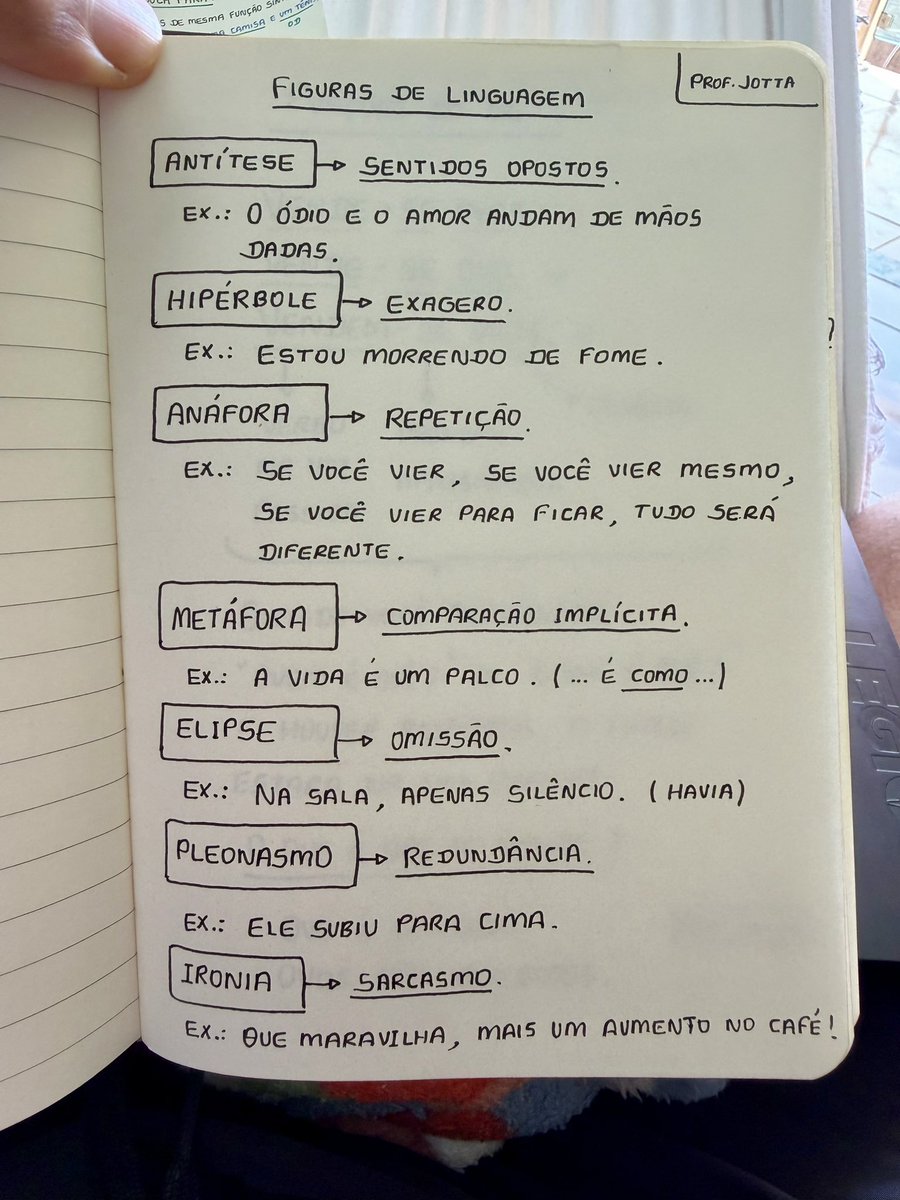 S DE MESMA FUNÇÃO
CAMISA E UM
OD
FIGURAS DE LINGUAGEM
PROF. JOTTA
ANTÍTESE → SENTIDOS OPOSTOS.
EX.: O ÓDIO E O AMOR ANDAM DE MÃOS
DADAS.
HIPÉRBOLE → EXAGERO.
EX.: ESTOU MORRENDO DE FOME.
ANÁFORA → REPETIÇÃO.
EX.: SE VOCÊ VIER, SE VOCÊ VIER MESMO,
SE VOCÊ VIER PARA FICAR, TUDO SERÁ
DIFERENTE.
METÁFORA → COMPARAÇÃO IMPLÍCITA.
EX.: A VIDA É UM PALCO. (... É COMO ...)
ELIPSE → OMISSÃO.
EX.: NA SALA, APENAS SILÊNCIO. (HAVIA)
PLEONASMO → REDUNDÂNCIA.
EX.: ELE SUBIU PARA CIMA.
IRONIA → SARCASMO.
EX.: QUE MARAVILHA, MAIS UM AUMENTO NO CAFÉ!
LEGIO